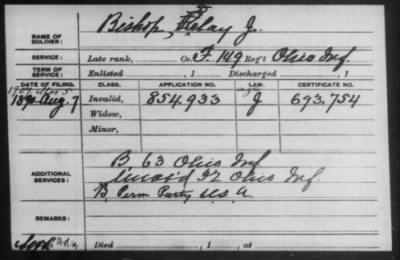 NAME OF SOLDIER: Bishop, Filay J.
SERVICE: Late rank, Co. F, 149 Reg't Ohio Inf.
TERM OF SERVICE: Enlisted , 1 Discharged , 1
DATE OF FILING. CLASS. APPLICATION NO. LAW. CERTIFICATE NO.
1890 Aug. 7 Invalid, 854,933 J 693,754
Widow,
Minor,
ADDITIONAL SERVICES: B 63 Ohio Inf
Ohio Inf.
B. Perm Party U.S.A.
REMARKS:
Died , 1 , at